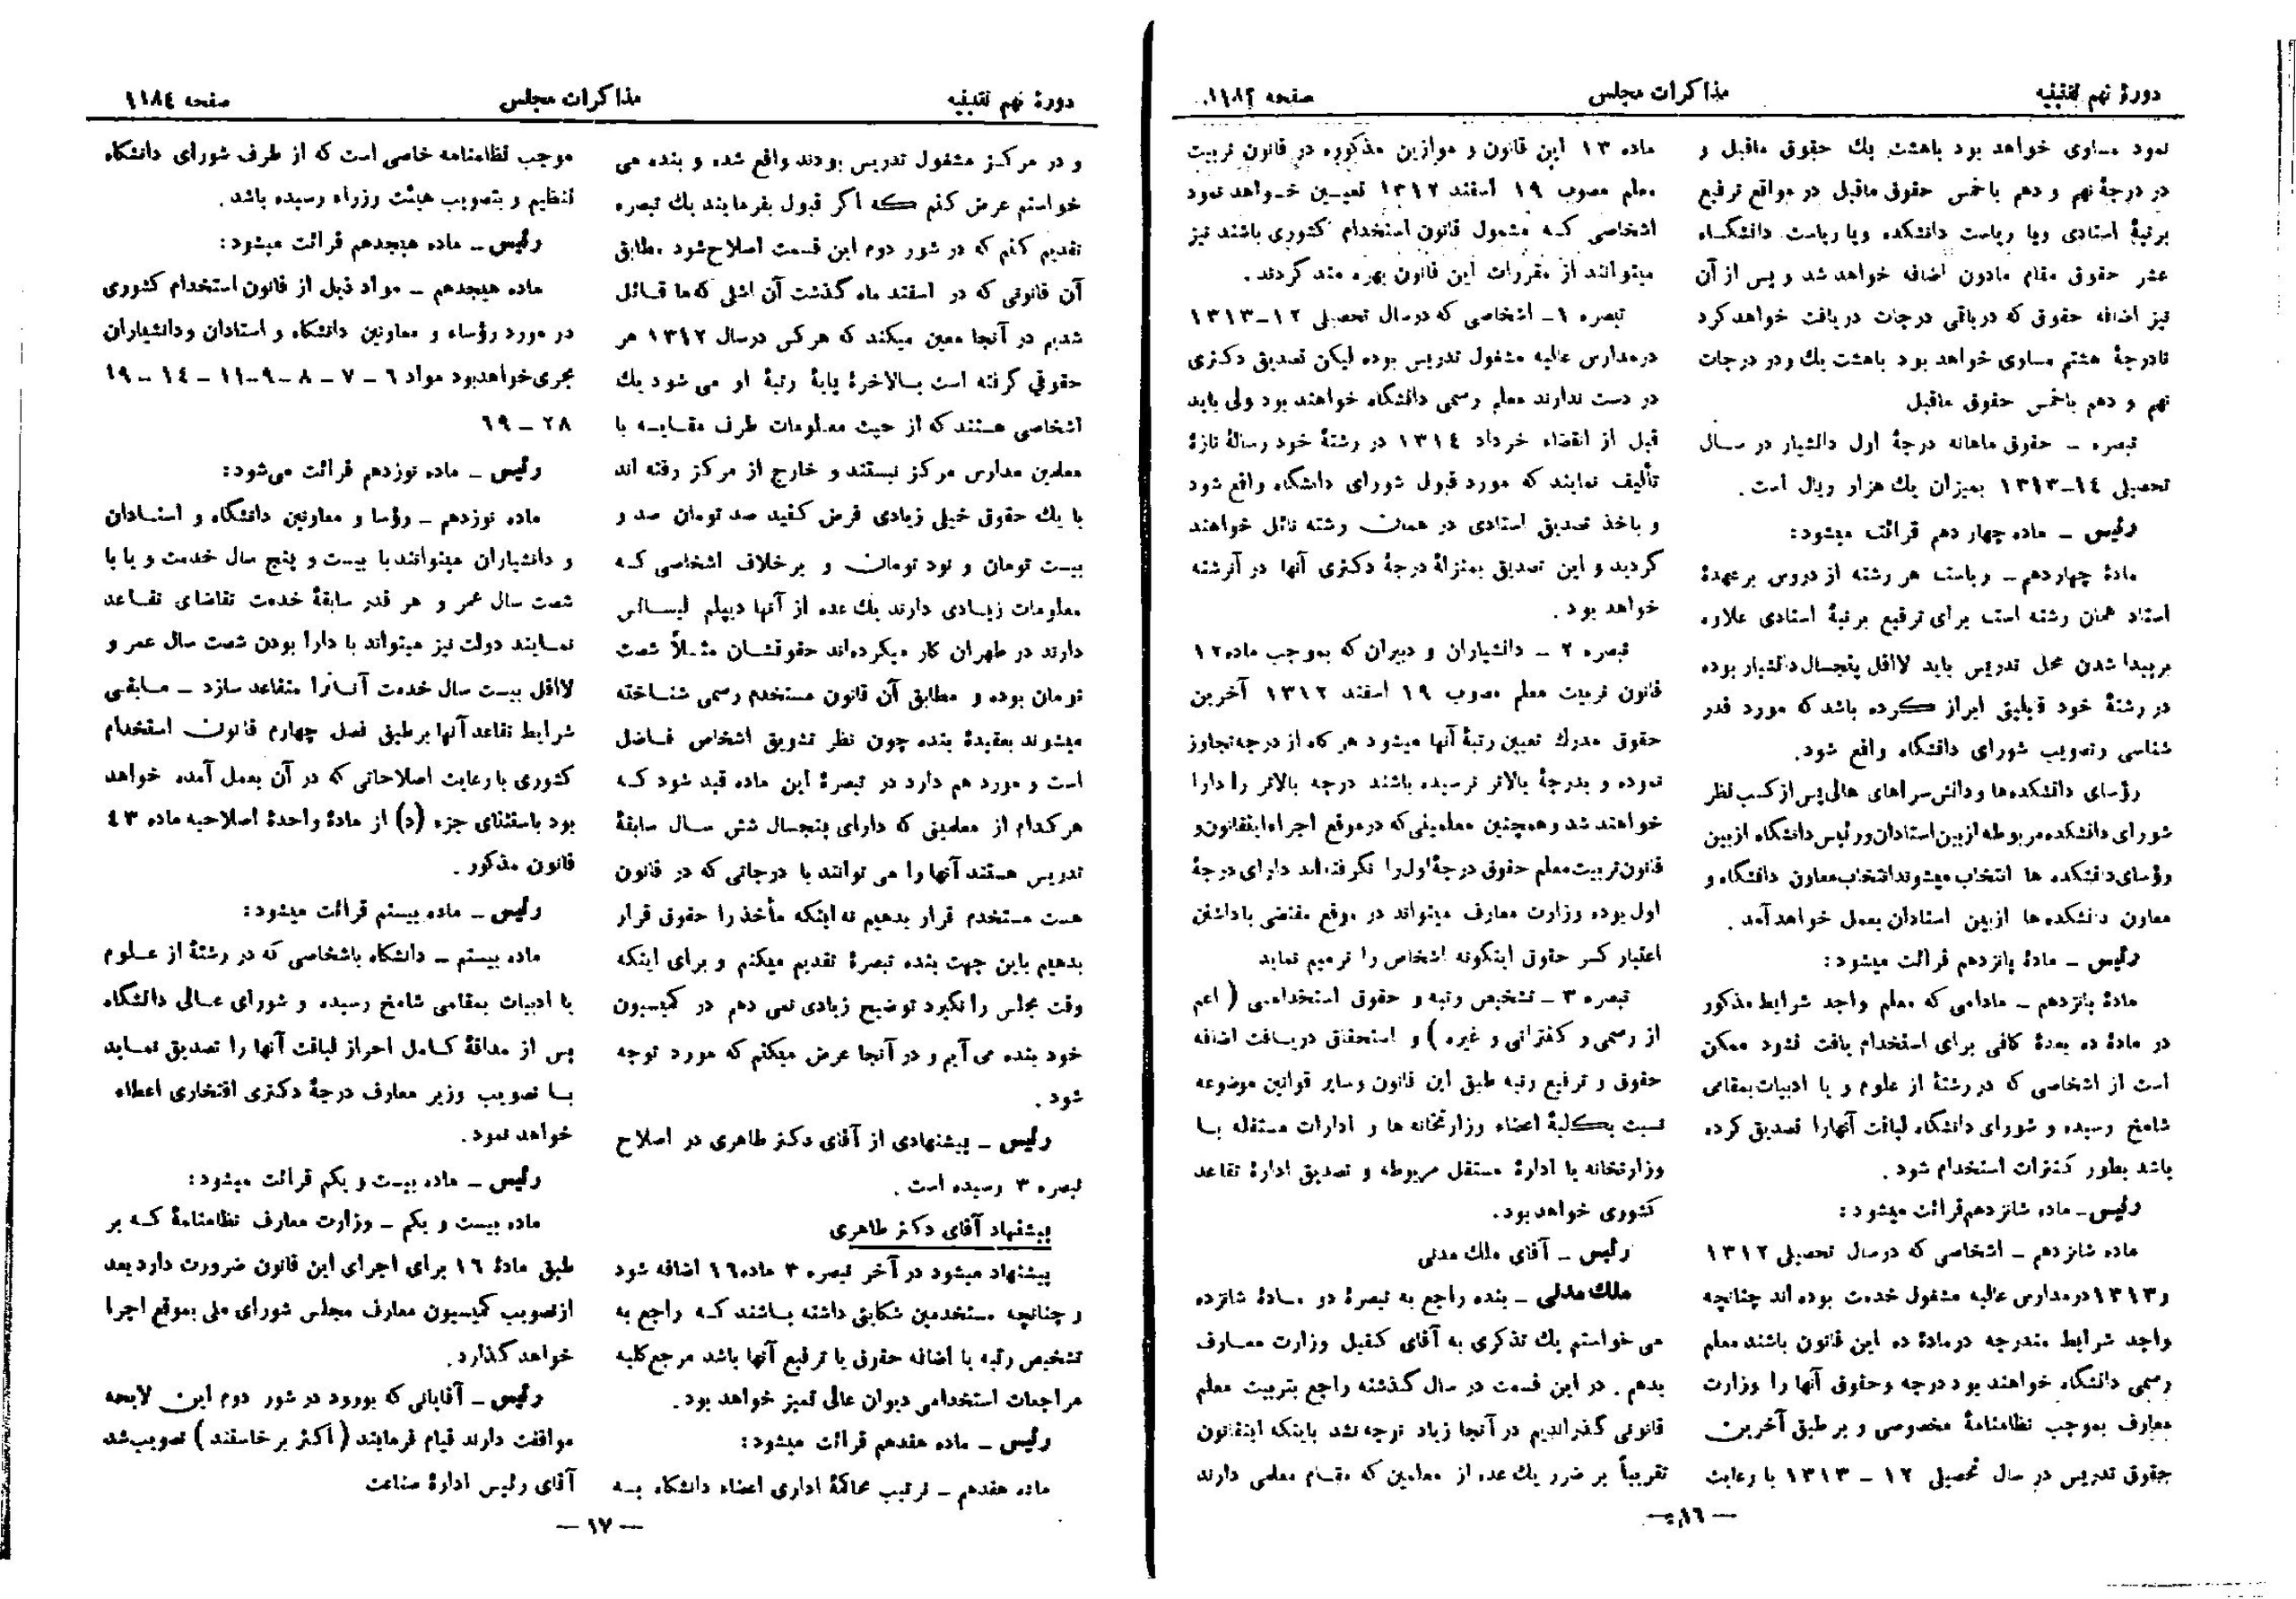 دورهٔ نهم تقنینیه
مذاکرات مجلس
صفحه ۱۱۸۲
نمود مساوی خواهد بود باهشت یك حقوق ماقبل و
در درجهٔ نهم و دهم باخمس حقوق ماقبل در مواقع ترفیع
برتبهٔ استادی ویا ریاست دانشکده ویا ریاست دانشگاه
عشر حقوق مقام مادون اضافه خواهد شد و پس از آن
نیز اضافه حقوق که درباقی درجات دریافت خواهد کرد
تادرجهٔ هشتم مساوی خواهد بود باهشت یك ودر درجات
نهم و دهم باخمس حقوق ماقبل
تبصره – حقوق ماهانه درجهٔ اول دانشیار در سال
تحصیلی ۱۴–۱۳۱۳ بمیزان یك هزار ریال است.
رئیس – ماده چهار دهم قرائت میشود:
مادهٔ چهاردهم – ریاست هر رشته از دروس برعهدهٔ
استاد همان رشته است برای ترفیع برتبهٔ استادی علاوه
برپیدا شدن محل تدریس باید لااقل پنجسال دانشیار بوده
در رشتهٔ خود قابلیق ابراز کرده باشد که مورد قدر
شناسی وتصویب شورای دانشگاه واقع شود.
رؤسای دانشکده‌ها ودانش سراهای عالی پس از کسب نظر
شورای دانشکده مربوطه از بین استادان ورئیس دانشگاه از بین
رؤسای دانشکده ها انتخاب میشوند انتخاب معاون دانشگاه و
معاون دانشکده ها ازبین استادان بعمل خواهد آمد.
رئیس – مادهٔ پانزدهم قرائت میشود:
مادهٔ پانزدهم – مادامی که معلم واجد شرایط مذکور
در مادهٔ ده بعدهٔ کافی برای استخدام یافت نشود ممکن
است از اشخاصی که در رشتهٔ از علوم و یا ادبیات بمقامی
شامخ رسیده و شورای دانشگاه لیاقت آنهارا تصدیق کرده
باشد بطور کنترات استخدام شود.
رئیس – ماده شانزدهم قرائت میشود:
ماده شانزدهم – اشخاصی که درسال تحصیلی ۱۳۱۲
و۱۳۱۳ درمدارس عالیه مشغول خدمت بوده اند چنانچه
واجد شرایط مندرجه درمادهٔ ده این قانون باشند معلم
رسمی دانشگاه خواهند بود درجه وحقوق آنها را وزارت
معارف بموجب نظامنامهٔ مخصوصی و بر طبق آخرین
حقوق تدریس در سال تحصیلی ۱۲ – ۱۳۱۳ با رعایت
ماده ۱۳ این قانون و موازین مذکوره در قانون تربیت
معلم مصوب ۱۹ اسفند ۱۳۱۲ تعیین خواهد نمود
اشخاصی که مشمول قانون استخدام کشوری باشند نیز
میتوانند از مقررات این قانون بهره مند گردند.
تبصره ۱– اشخاصی که درسال تحصیلی ۱۲–۱۳۱۳
درمدارس عالیه مشغول تدریس بوده لیکن تصدیق دکتری
در دست ندارند معلم رسمی دانشگاه خواهند بود ولی باید
قبل از انقضاء خرداد ۱۳۱۴ در رشتهٔ خود رسالهٔ تازهٔ
تألیف نمایند که مورد قبول شورای دانشگاه واقع شود
و باخذ تصدیق استادی در همان رشته نائل خواهند
گردید و این تصدیق بمنزلهٔ درجهٔ دکتری آنها در آنرشته
خواهد بود.
تبصره ۲ – دانشیاران و دبیران که بموجب ماده ۱۲
قانون تربیت معلم مصوب ۱۹ اسفند ۱۳۱۲ آخرین
حقوق مدرك تعیین رتبهٔ آنها میشود هر گاه از درجه تجاوز
نموده و بدرجهٔ بالاتر نرسیده باشند درجه بالاتر را دارا
خواهند شد وهمچنین معلمینی که درموقع اجراء اینقانون و
قانون تربیت معلم حقوق درجهٔ اول را نگرفته اند دارای درجهٔ
اول بوده وزارت معارف میتواند در موقع مقتضی باداشتن
اعتبار کسر حقوق اینگونه اشخاص را ترمیم نماید
تبصره ۳ – تشخیص رتبه و حقوق استخدامی (اعم
از رسمی و کنتراتی و غیره) و استحقاق دریافت اضافه
حقوق و ترفیع رتبه طبق این قانون وسایر قوانین موضوعه
نسبت بکلیهٔ اعضاء وزارتخانه ها و ادارات مستقله با
وزارتخانه یا ادارهٔ مستقل مربوطه و تصدیق ادارهٔ تقاعد
کشوری خواهد بود.
رئیس – آقای ملك مدنی
ملك مدنی – بنده راجع به تبصرهٔ دو مادهٔ شانزده
می خواستم یك تذکری به آقای کفیل وزارت معارف
بدهم. در این قسمت در سال گذشته راجع بتربیت معلم
قانونی گذراندیم در آنجا زیاد توجه نشد باینکه اینقانون
تقریباً بر ضرر یك عده از معلمین که مقام معلمی دارند
– ۱۶ –
دورهٔ نهم تقنینیه
مذاکرات مجلس
صفحه ۱۱۸۴
و در مرکز مشغول تدریس بودند واقع شده و بنده می
خواستم عرض کنم که اگر قبول بفرمایند یك تبصره
تقدیم کنم که در شور دوم این قسمت اصلاح شود مطابق
آن قانونی که در اسفند ماه گذشت آن اشلی که ما قائل
شدیم در آنجا معین میکند که هرکس درسال ۱۳۱۲ هر
حقوقی گرفته است بالاخرهٔ پایهٔ رتبهٔ او می شود یك
اشخاصی هستند که از حیث معلومات طرف مقایسه با
معلمین مدارس مرکز نیستند و خارج از مرکز رفته اند
با یك حقوق خیلی زیادی فرض کنید صد تومان صد و
بیست تومان و نود تومان و برخلاف اشخاصی که
معلومات زیادی دارند یك عده از آنها دیپلم لیسانس
دارند در طهران کار میکرده‌اند حقوقشان مثلاً شصت
تومان بوده و مطابق آن قانون مستخدم رسمی شناخته
میشوند بعقیدهٔ بنده چون نظر تشویق اشخاص فاضل
است و مورد هم دارد در تبصرهٔ این ماده قید شود که
هرکدام از معلمینی که دارای پنجسال شش سال سابقهٔ
تدریس هستند آنها را می توانند با درجاتی که در قانون
هست مستخدم قرار بدهیم نه اینکه مأخذ را حقوق قرار
بدهیم باین جهت بنده تبصرهٔ تقدیم میکنم و برای اینکه
وقت مجلس را نگیرد توضیح زیادی نمی دهم در کمیسیون
خود بنده می آیم و در آنجا عرض میکنم که مورد توجه
شود.
رئیس – پیشنهادی از آقای دکتر طاهری در اصلاح
تبصره ۳ رسیده است.
پیشنهاد آقای دکتر طاهری
پیشنهاد میشود در آخر تبصره ۳ ماده ۱۶ اضافه شود
و چنانچه مستخدمین شکایتی داشته باشند که راجع به
تشخیص رتبه یا اضافه حقوق یا ترفیع آنها باشد مرجع کلیه
مراجعات استخدامی دیوان عالی تمیز خواهد بود.
رئیس – ماده هفدهم قرائت میشود:
ماده هفدهم – ترتیب محاکمهٔ اداری اعضاء دانشگاه به
موجب نظامنامه خاصی است که از طرف شورای دانشگاه
تنظیم و بتصویب هیئت وزراء رسیده باشد.
رئیس – ماده هیجدهم قرائت میشود:
ماده هیجدهم – مواد ذیل از قانون استخدام کشوری
در مورد رؤساء و معاونین دانشگاه و استادان ودانشیاران
مجری خواهد بود مواد ۶ – ۷ – ۸ –۹–۱۱ – ۱۴ – ۱۹
۲۸ – ۶۹
رئیس – ماده نوزدهم قرائت می‌شود:
ماده نوزدهم – رؤسا و معاونین دانشگاه و استادان
و دانشیاران میتوانند با بیست و پنج سال خدمت و یا با
شصت سال عمر و هر قدر سابقهٔ خدمت تقاضای تقاعد
نمایند دولت نیز میتواند با دارا بودن شصت سال عمر و
لااقل بیست سال خدمت آنانرا متقاعد سازد – مابقی
شرایط تقاعد آنها برطبق فصل چهارم قانون استخدام
کشوری با رعایت اصلاحاتی که در آن بعمل آمده خواهد
بود باستثنای جزء (د) از مادهٔ واحدهٔ اصلاحیه ماده ۴۳
قانون مذکور.
رئیس – ماده بیستم قرائت میشود:
ماده بیستم – دانشگاه باشخاصی که در رشتهٔ از علوم
یا ادبیات بمقامی شامخ رسیده و شورای عالی دانشگاه
پس از مداقهٔ کامل احراز لیاقت آنها را تصدیق نماید
با تصویب وزیر معارف درجهٔ دکتری افتخاری اعطاء
خواهد نمود.
رئیس – ماده بیست و یکم قرائت میشود:
ماده بیست و یکم – وزارت معارف نظامنامهٔ که بر
طبق مادهٔ ۱۶ برای اجرای این قانون ضرورت دارد بعد
ازتصویب کمیسیون معارف مجلس شورای ملی بموقع اجرا
خواهد گذارد.
رئیس – آقایانی که بورود در شور دوم این لایحه
موافقت دارند قیام فرمایند (اکثر برخاستند) تصویب شد
آقای رئیس ادارهٔ صناعت
– ۱۷ –